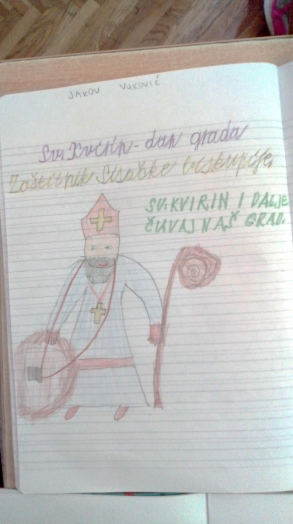 JAKOV VUKOVIĆ
Sv. Kvirin - dan grada
Zaštitnik Sisačke biskupije
SV. KVIRIN I DALJE
ČUVAJ NAŠ GRAD.